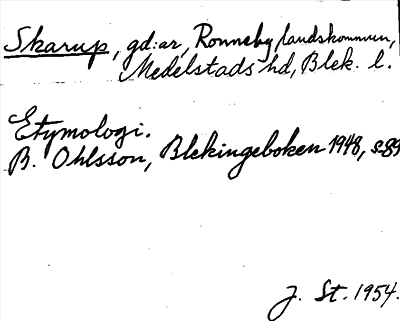 Skarup, gd:ar, Ronneby landskommun,
Medelstads hd, Blek. l.
Etymologi.
B. Ohlsson, Blekingeboken 1948, s.89
J. St. 1954.